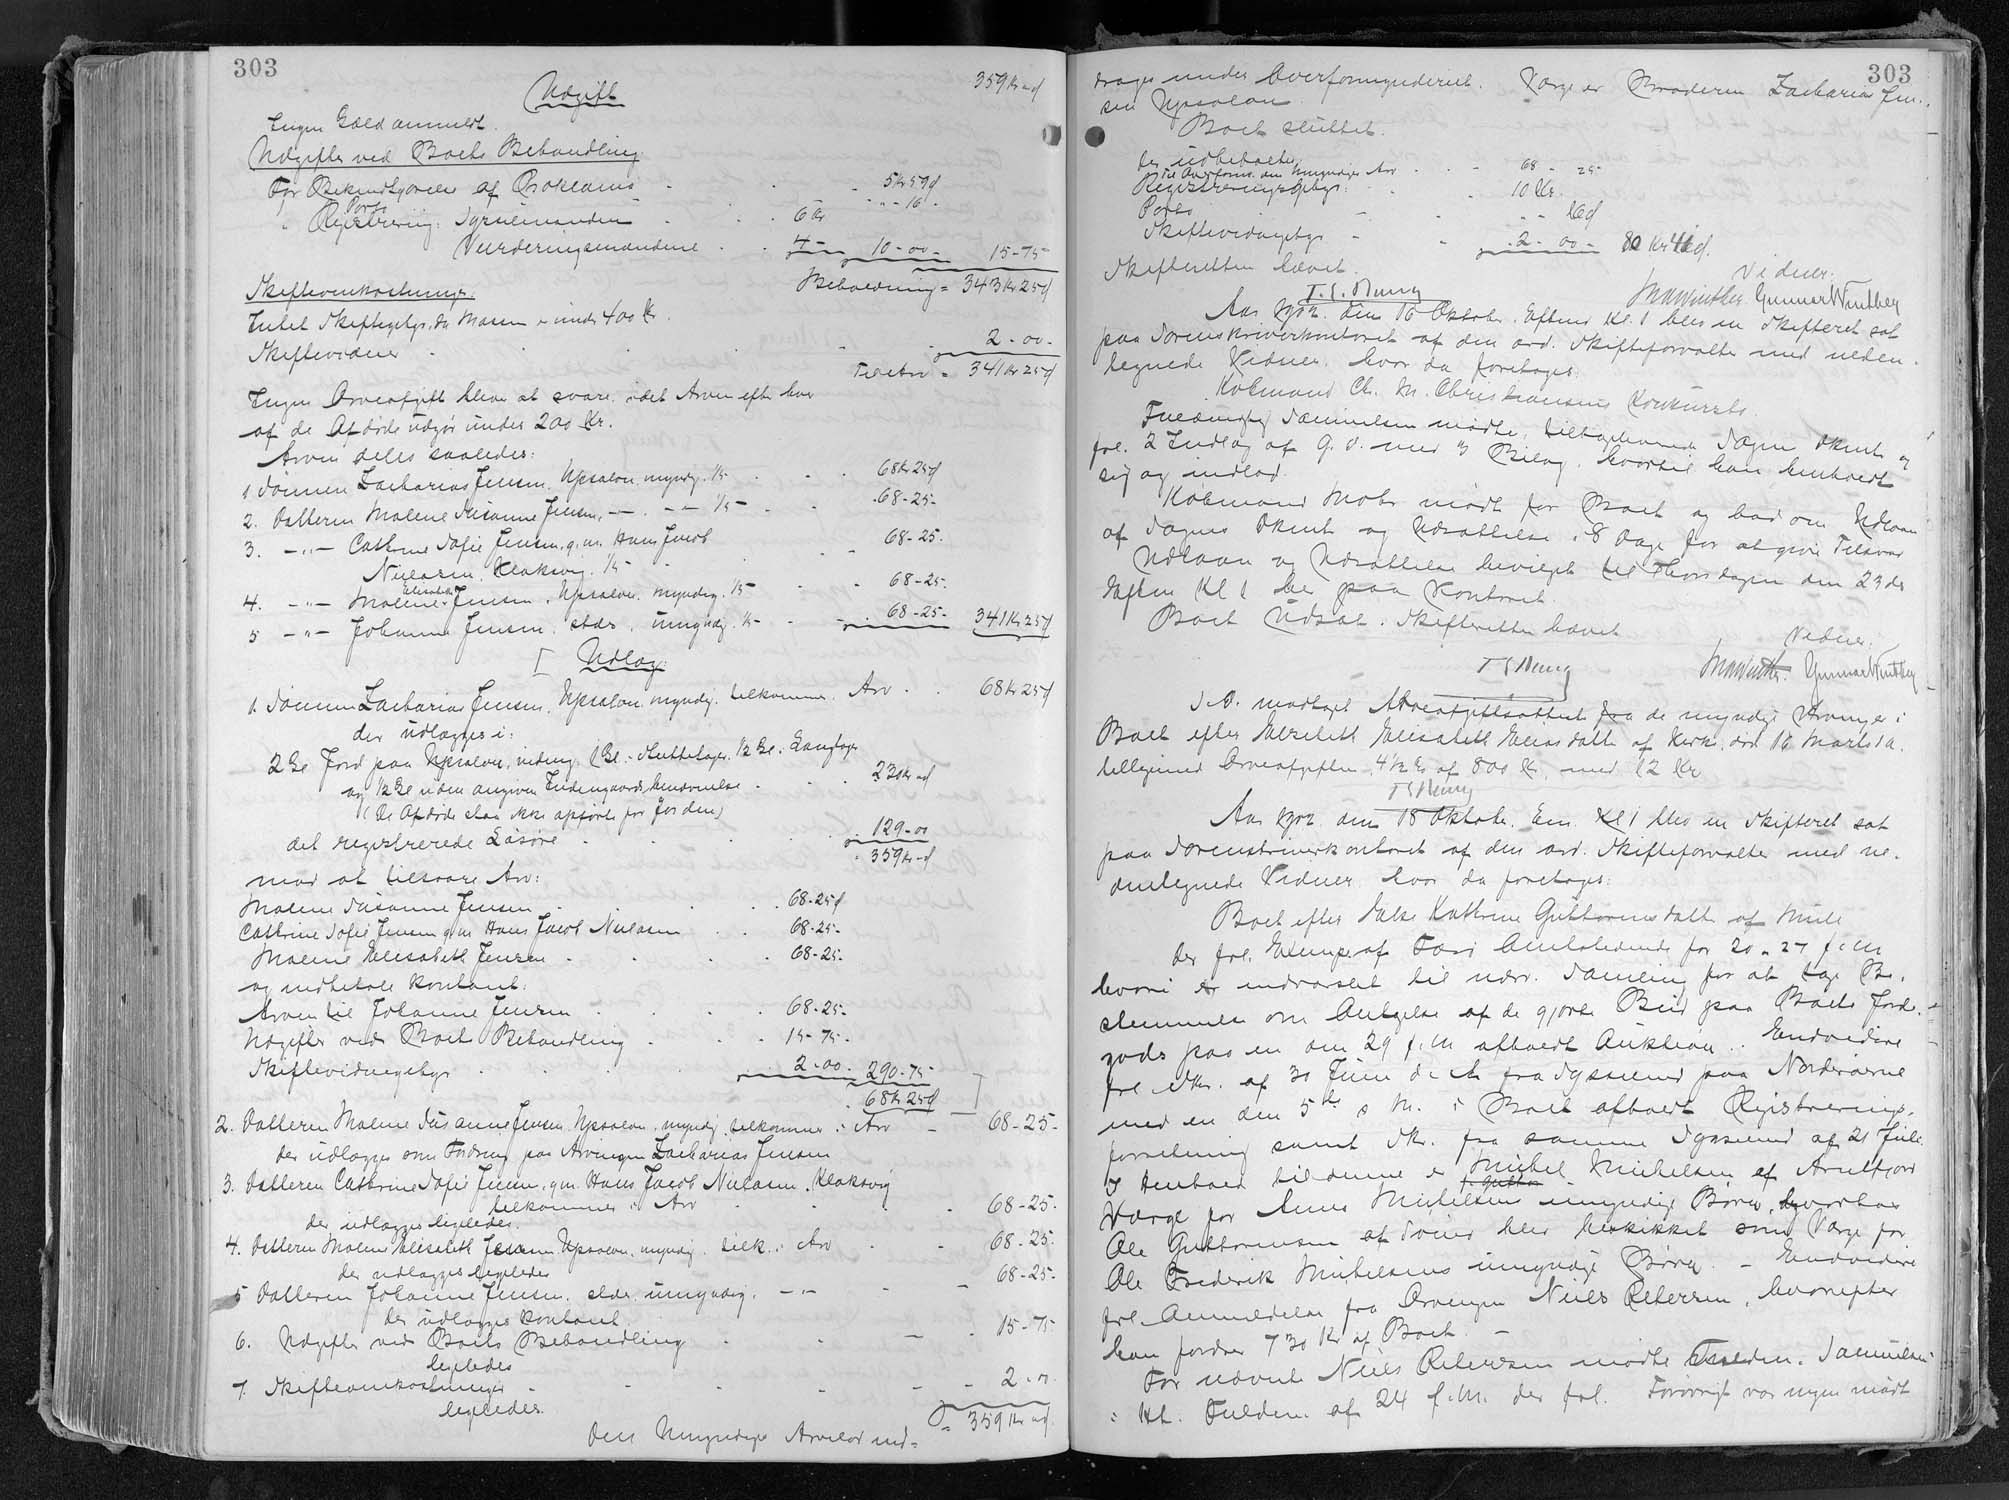 303
359 Kr " d
Udgift
Ingen Gæld anmeldt.
Udgifter ved Boets Behandling
For Bekendtgørelse af Proklama - 5 Kr 59 d
Porto - " - 16 -
" Registrering: Sysselmanden - 6 Kr
Vurderingsmændene - 4 - 10 - 00 - 15 - 75
Beholdning = 343 Kr 25 d
Skifteomkostninger.
Intet Skiftegebyr, da Massen er under 400 Kr.
Skiftevidner - 2 - 00 -
Til Arv = 341 Kr 25 d
Ingen Arveafgift bliver at svare, idet Arven efter hver
af de Afdøde udgør under 200 Kr.
Arven deles saaledes:
1. Sønnen Zacharias Jensen, Upsalon, myndig. 1/5 - 68 Kr 25 d
2. Datteren Malene Susanne Jensen, - " - - " - 1/5 - 68 - 25 -
3. - " - Cathrine Sofie Jensen, g.m. Hans Jacob
Nielasen, Klaksvig. 1/5 - 68 - 25 -
4. - " - Malene Elisabeth Jensen, Upsalon, myndig. 1/5 - 68 - 25 -
5 - " - Johanne Jensen, stds, umyndig. 1/5 - 68 - 25 - 341 Kr 25 d
Udlæg:
1. Sønnen Zacharias Jensen, Upsalon, myndig. tilkommer Arv - 68 Kr 25 d
der udlægges i:
2 Gl Jord paa Upsalon,
og 1/2 Gl uden angiven Indengaardsbenævnelse - 230 Kr " d
(De Afdøde staar ikke opført for Jorden)
det registrerede Løsøre - 129 - 00
= 359 Kr - d
mod at tilsvare Arv:
Malene Susanne Jensen - 68 - 25 d
Cathrine Sofie Jensen g.m. Hans Jacob Nielasen - 68 - 25 -
Malene Elisabeth Jensen - 68 - 25 -
og indbetale kontant:
Arven til Johanne Jensen - 68 - 25 -
Udgifter ved Boets Behandling - 15 - 75 -
Skiftevidnegebyr - 2 - 00 - 290 - 75
68 Kr 25 d
2. Datteren Malene Susanne Jensen, Upsalon, myndig, tilkommer i Arv - 68 - 25 -
der udlægges som Fordring paa Arvingen Zacharias Jensen
3. Datteren Cathrine Sofie Jensen, g.m. Hans Jacob Nielasen, Klaksvig
tilkommer i Arv - 68 - 25 -
der udlægges ligeledes.
4. Datteren Malene Elisabeth Jensen, Upsalon, myndig, tilk. i Arv - 68 - 25 -
der udlægges ligeledes
5 Datteren Johanne Jensen, stds, umyndig, - " - - 68 - 25 -
der udlægges kontant.
6. Udgifter ved Boets Behandling - 15 - 75
ligeledes
7. Skifteomkostninger - 2 - "
ligeledes.
= 359 Kr " d
Den Umyndiges Arvelod ind-
303
drages under Overformynderiet. Værge er Broderen Zacharias Jen-
sen Upsalon.
Boet sluttet.
der udbetaltes
til Overform. den Umyndiges Arv - 68 - 25 -
Registreringsgebyr - 10 Kr.
Porto - " - 16 d
Skiftevidnegebyr - 2 - 00 - 80 Kr 41 d.
Skifteretten hævet.
Vidner:
Gunnar Winther
Aar 1902 den 16 Oktober Efterm. Kl. 1 blev en Skifteret sat
paa Sorenskriverkontoret af den ord. Skifteforvalter med neden-
tegnede Vidner, hvor da foretoges:
Købmand Ch. M. Christiansens Konkursbo.
Fuldmægtig Samuelsen mødte, tilbageleverede Sagens Dkmt. og
frl. 2 Indlæg af G. D. med 3 Bilag, hvortil han henholdt
sig og indlod.
Købmand Mohr mødte for Boet og bad om Udlaan
af Sagens Dkmt og Udsættelse i 8 Dage for at give Tilsvar
Udlaan og Udsættelse bevilget til Thorsdagen den 23 ds
Eftm Kl 1 her paa Kontoret.
Boet Udsat. Skifteretten hævet
Vidner:
Gunnar Winther
S. D. modtaget Arveafgiftsattest fra de myndige Arvinger i
Boet efter Elisabeth Eliasdatter af Kirke, død 16 Marts d.A.
tilligemed Arveafgiften, 4 1/2 % af 800 Kr, med 12 Kr
Aar 1902 den 18 Oktober. Em. Kl 1 blev en Skifteret sat
paa Sorenskriverkontoret af den ord. Skifteforvalter med ne-
dentegnede Vidner, hvor da foretoges:
Boet efter Kathrine Guttormsdatter af Mule
Der frl. Exempl. af Færø Amtstidende for 20 " 27 f.M.
hvori er indvarslet til nærv. Samling for at tage Be-
stemmelse om Antagelse af de gjorte Bud paa Boets Jorde-
gods paa en den 29 f.M. afholdt Auktion. Endvidere
frl Skr. af 30 Juni d. A fra Sysselmd paa Norderøerne
med en den 5te s M. i Boet afholdt Registrerings-
forretning samt Skr. fra samme Sysselmd af 21 Juli.
I Henhold til denne er Mikkel Mikkelsen af Arnefjord
Værge for Anna Mikkelsens umyndige Børn, hvorhos
Ole Guttormsen af blev beskikket som Værge for
Ole Frederik Mikkelsens umyndige Børn. - Endvidere
frl. Anmeldelse fra Arvingen Niels Petersen, hvorefter
han fordrer 730 Kr af Boet. -
For nævnte Niels Petersen mødte Fuldm. Samuelsen
i Hl. Fuldm. af 24 f.M. der frl. Forøvrigt var ingen mødt